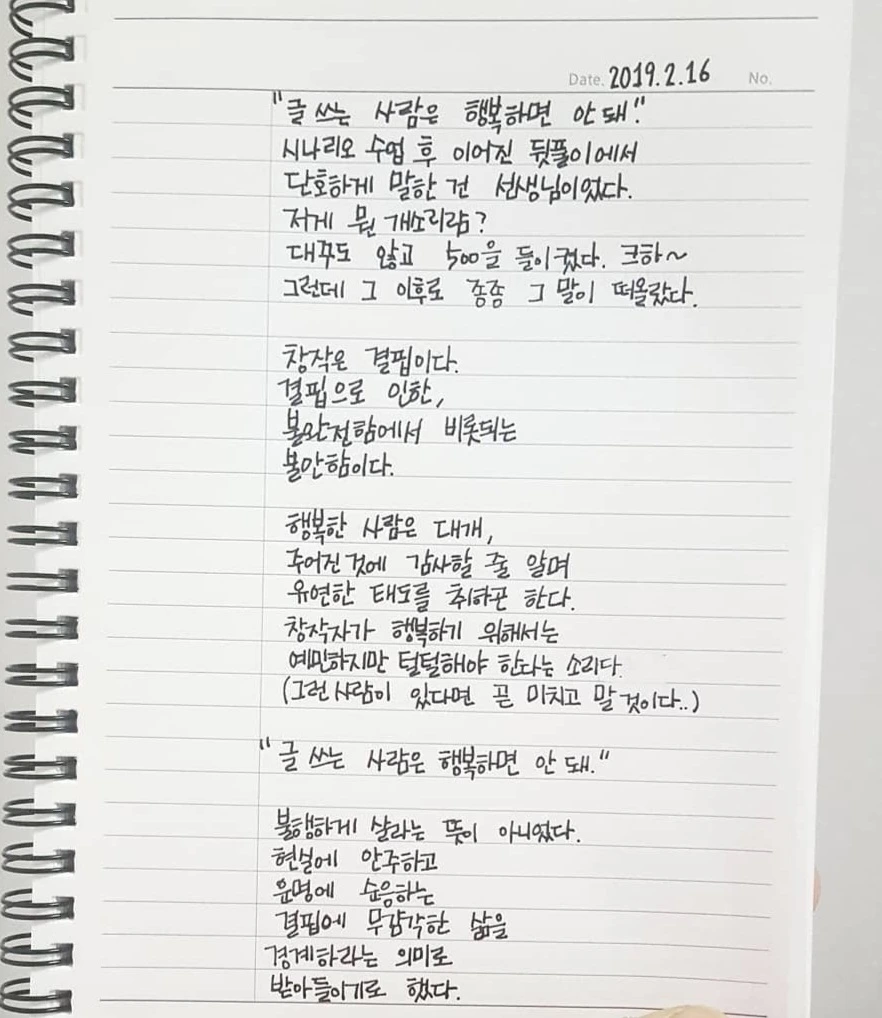 Date. 2019.2.16 No.
"글 쓰는 사람은 행복하면 안 돼."
시나리오 수업 후 이어진 뒷풀이에서
단호하게 말한 건 선생님이었다.
저게 뭔 개소리람?
대꾸도 않고 500을 들이켰다. 크하~
그런데 그 이후로 종종 그 말이 떠올랐다.
창작은 결핍이다.
결핍으로 인한,
불완전함에서 비롯되는
불안함이다.
행복한 사람은 대개,
주어진 것에 감사할 줄 알며
유연한 태도를 취하곤 한다.
창작자가 행복하기 위해서는
예민하지만 털털해야 한다는 소리다.
(그런 사람이 있다면 곧 미치고 말 것이다..)
"글 쓰는 사람은 행복하면 안 돼."
불행하게 살라는 뜻이 아니었다.
현실에 안주하고
운명에 순응하는
결핍에 무감각한 삶을
경계하라는 의미로
받아들이기로 했다.